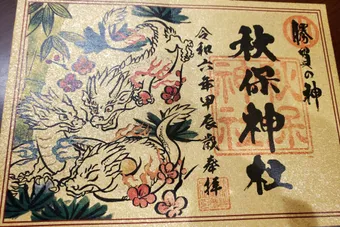 勝負の神
秋保神社
令和六年甲辰歳奉拝